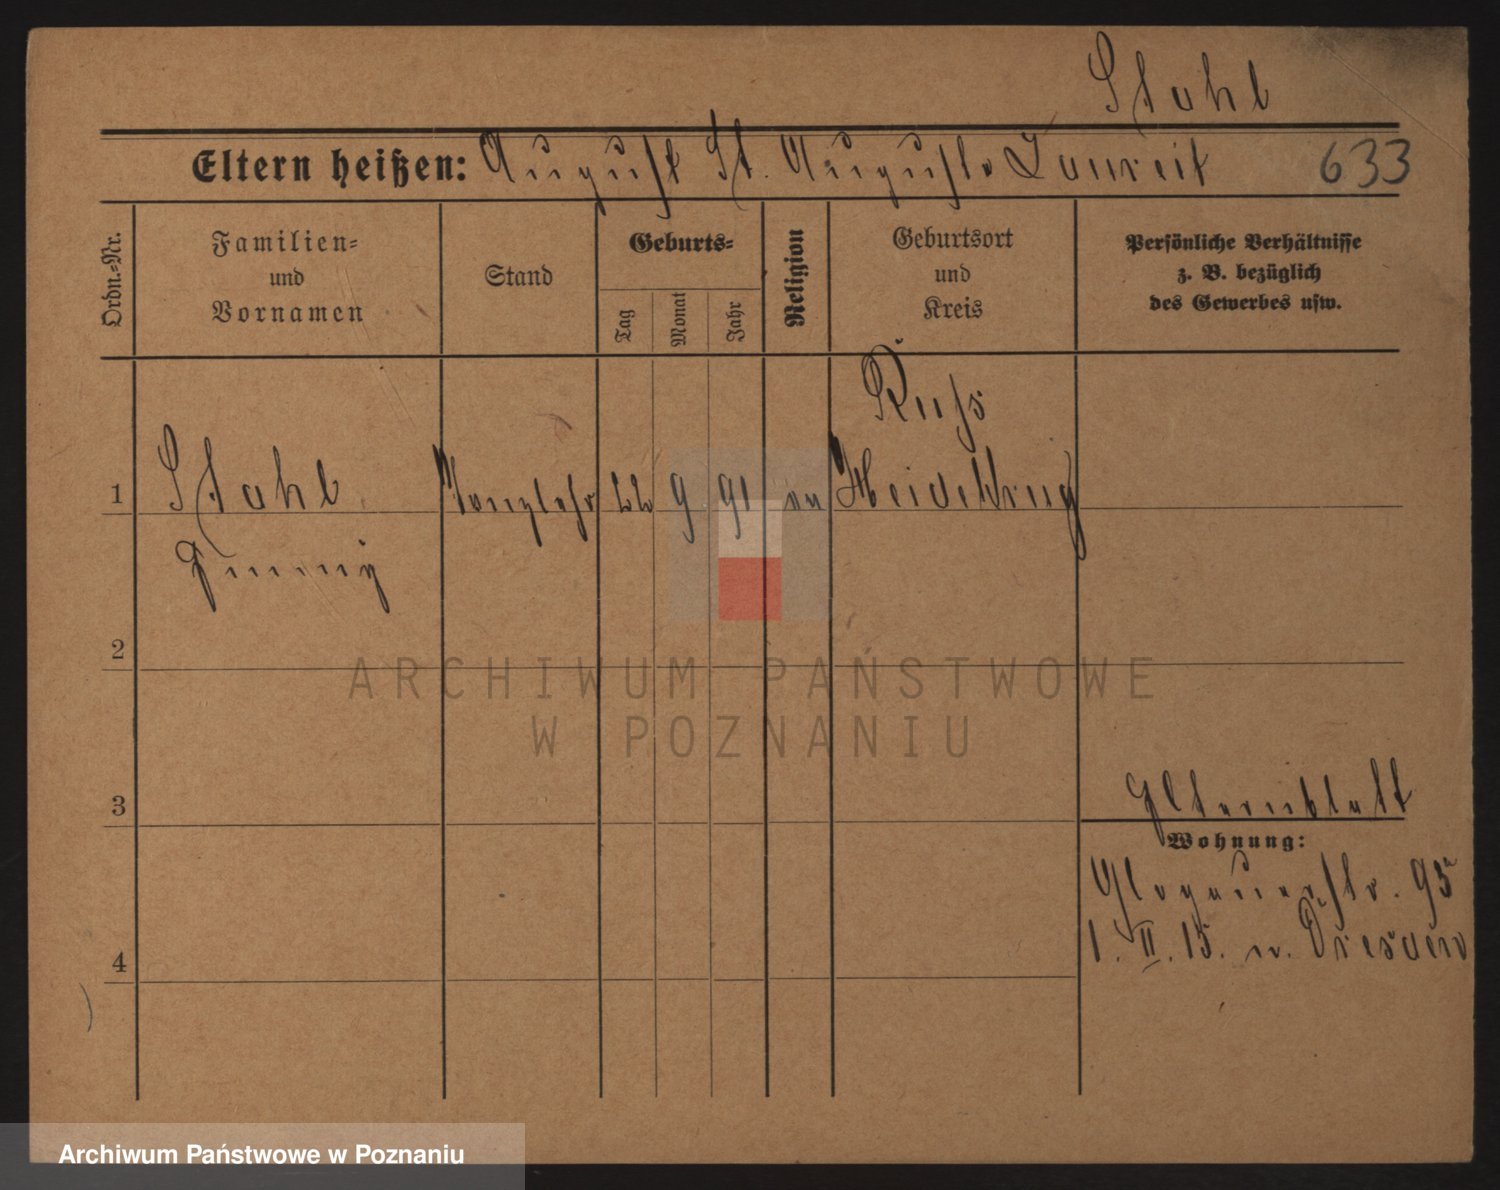 Stahl
Eltern heißen: August St. Auguste Laureit 633
Ordn.-Nr.
Familien-
und
Vornamen
Stand
Geburts-
Tag
Monat
Jahr
Religion
Geburtsort
und
Kreis
Persönliche Verhältnisse
z. B. bezüglich
des Gewerbes usw.
Russ
1 Stahl 22 9 91 ev Heidekrug
Emmy
2
ARCHIWUM PAŃSTWOWE
W POZNANIU
3
Elternblatt
Wohnung:
Glogauerstr. 95
1. II. 15. n. Dresden
4
Archiwum Państwowe w Poznaniu